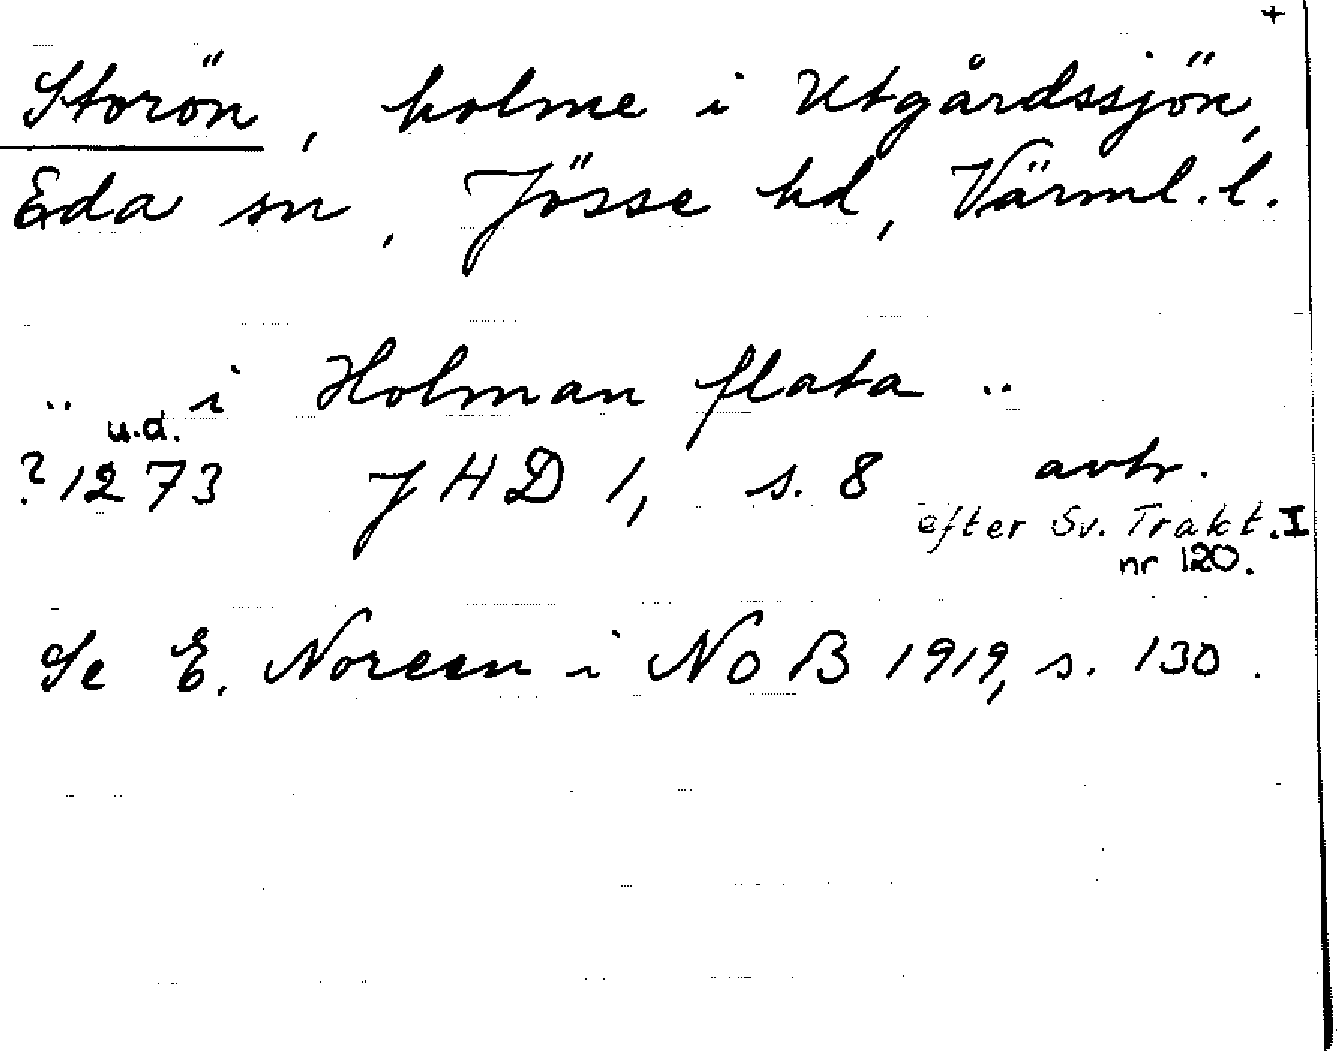 +
Storön, holme i Utgårdssjön,
Eda sn, Jösse hd, Värml. l.
.. i Holman flata ..
u.d.
?1273 JHD 1, s. 8 avtr.
efter Sv. Trakt. I
nr 120.
Se E. Noreen i NoB 1919, s. 130.